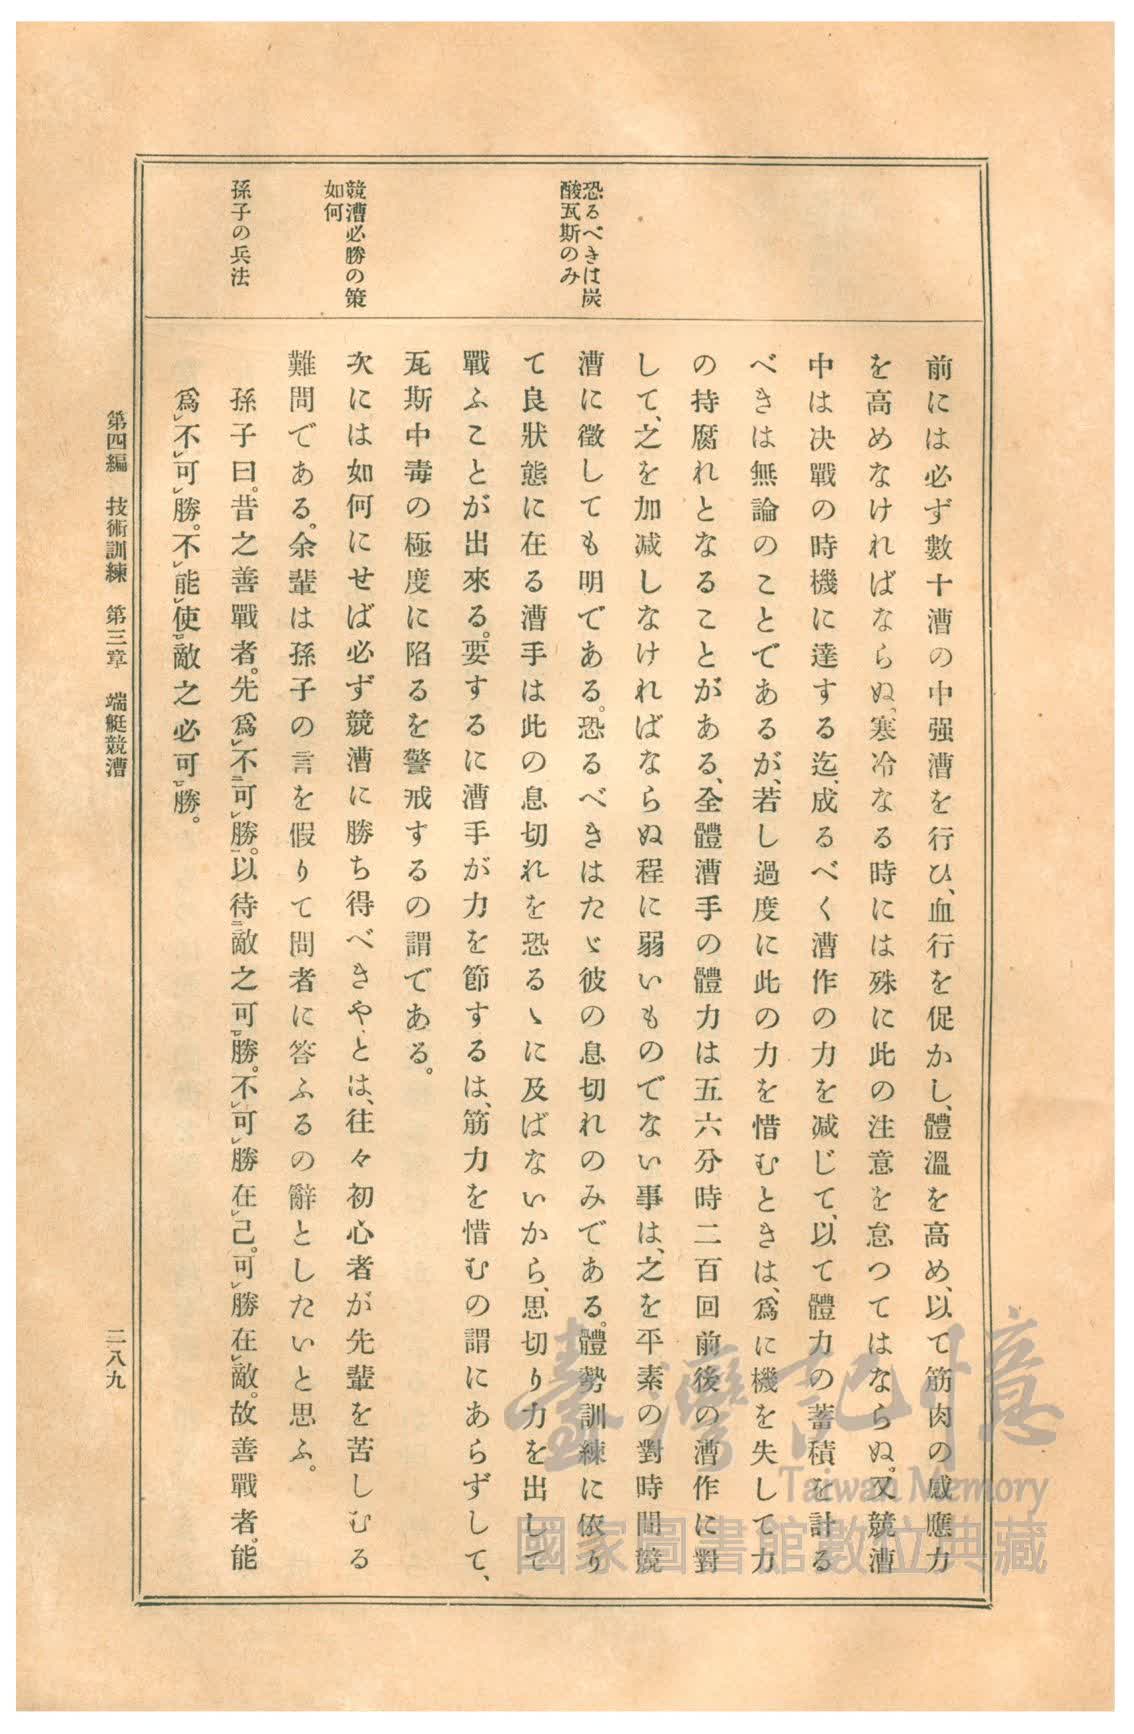 恐るべきは炭
酸瓦斯のみ
競漕必勝の策
如何
孫子の兵法
前には必ず數十漕の中强漕を行ひ、血行を促かし、體溫を高め、以て筋肉の感應力
を高めなければならぬ、寒冷なる時には殊に此の注意を怠つてはならぬ。又競漕
中は决戰の時機に達する迄、成るべく漕作の力を減じて、以て體力の蓄積を計る
べきは無論のことであるが、若し過度に此の力を惜むときは、爲に機を失して力
の持腐れとなることがある、全體漕手の體力は五六分時二百回前後の漕作に對
して、之を加減しなければならぬ程に弱いものでない事は、之を平素の對時間競
漕に徵しても明である。恐るべきはたゞ彼の息切れのみである。體勢訓練に依り
て良狀態に在る漕手は此の息切れを恐るゝに及ばないから、思切り力を出して
戰ふことが出來る。要するに漕手が力を節するは、筋力を惜むの謂にあらずして、
瓦斯中毒の極度に陷るを警戒するの謂である。
次には如何にせば必ず競漕に勝ち得べきやとは、往々初心者が先輩を苦しむる
難問である。余輩は孫子の言を假りて問者に答ふるの辭としたいと思ふ。
孫子曰。昔之善戰者。先爲㆑不㆓可㆑勝㆒。以待㆓敵之可㆒㆑勝。不㆑可㆑勝在㆑己。可㆑勝在㆑敵。故善戰者。能
爲㆑不㆑可㆑勝。不㆑能㆑使㆓敵之必可㆒㆑勝。
第四編　技術訓練　第三章　端艇競漕
二八九
臺灣記憶
Taiwan Memory
國家圖書館數位典藏